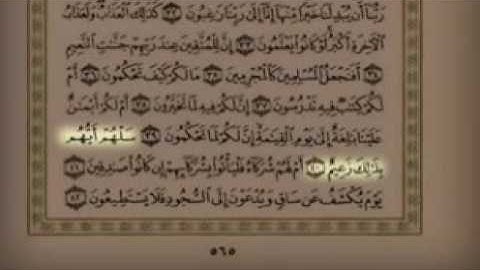 رَبُّنَآ أَن يُبۡدِلَنَا خَيۡرٗا مِّنۡهَآ إِنَّآ إِلَىٰ رَبِّنَا رَٰغِبُونَ ٣٢ كَذَٰلِكَ ٱلۡعَذَابُۖ وَلَعَذَابُ
ٱلۡأٓخِرَةِ أَكۡبَرُۚ لَوۡ كَانُواْ يَعۡلَمُونَ ٣٣ إِنَّ لِلۡمُتَّقِينَ عِندَ رَبِّهِمۡ جَنَّٰتِ ٱلنَّعِيمِ
٣٤ أَفَنَجۡعَلُ ٱلۡمُسۡلِمِينَ كَٱلۡمُجۡرِمِينَ ٣٥ مَا لَكُمۡ كَيۡفَ تَحۡكُمُونَ ٣٦ أَمۡ
لَكُمۡ كِتَٰبٞ فِيهِ تَدۡرُسُونَ ٣٧ إِنَّ لَكُمۡ فِيهِ لَمَا تَخَيَّرُونَ ٣٨ أَمۡ لَكُمۡ أَيۡمَٰنٌ
عَلَيۡنَا بَٰلِغَةٌ إِلَىٰ يَوۡمِ ٱلۡقِيَٰمَةِ إِنَّ لَكُمۡ لَمَا تَحۡكُمُونَ ٣٩ سَلۡهُمۡ أَيُّهُم
بِذَٰلِكَ زَعِيمٌ ٤٠ أَمۡ لَهُمۡ شُرَكَآءُ فَلۡيَأۡتُواْ بِشُرَكَآئِهِمۡ إِن كَانُواْ صَٰدِقِينَ ٤١
يَوۡمَ يُكۡشَفُ عَن سَاقٖ وَيُدۡعَوۡنَ إِلَى ٱلسُّجُودِ فَلَا يَسۡتَطِيعُونَ ٤٢
٥٦٥